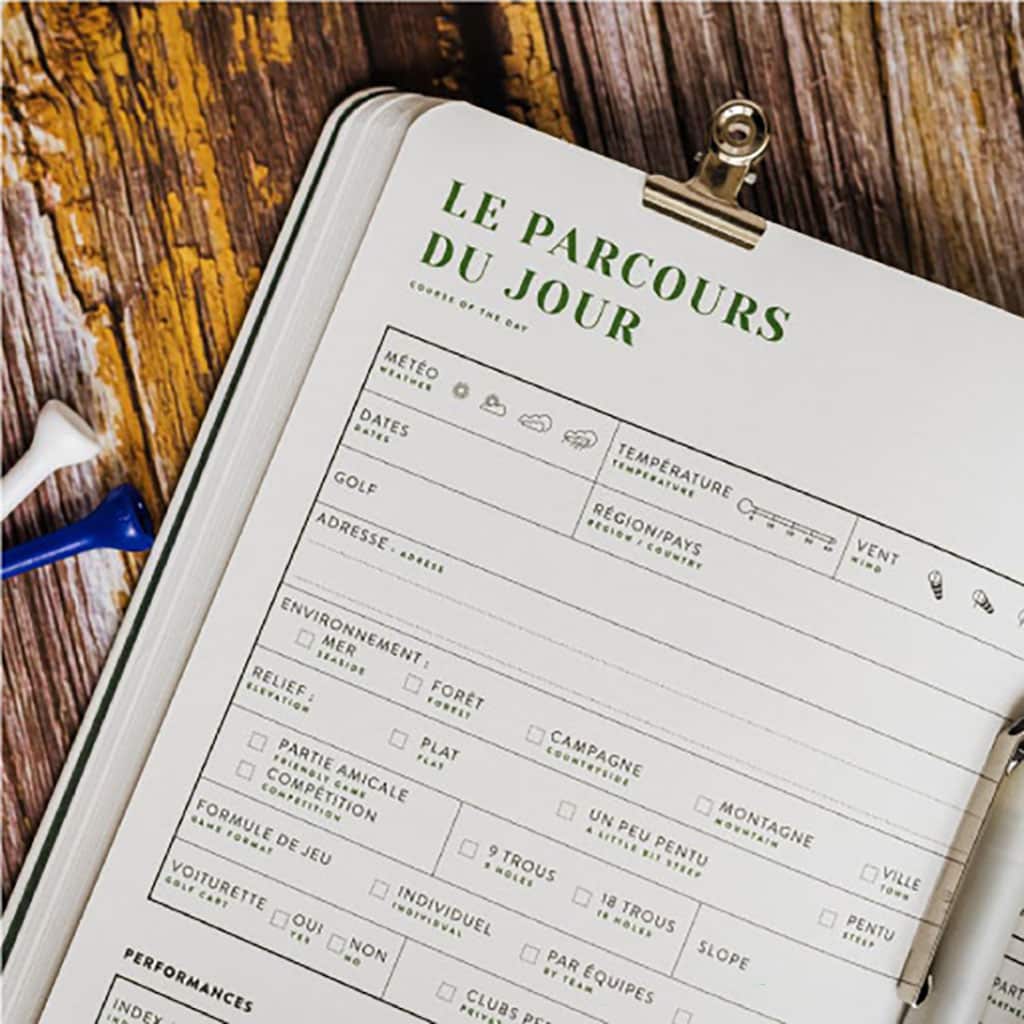 LE PARCOURS
DU JOUR
COURSE OF THE DAY
MÉTÉO
WEATHER
TEMPÉRATURE
TEMPERATURE
VENT
WIND
DATES
DATES
RÉGION/PAYS
REGION / COUNTRY
GOLF
ADRESSE : ADRESS
ENVIRONNEMENT :
MER
SEASIDE
FORÊT
FOREST
CAMPAGNE
COUNTRYSIDE
MONTAGNE
MOUNTAIN
VILLE
TOWN
RELIEF :
ELEVATION
PLAT
FLAT
UN PEU PENTU
A LITTLE BIT STEEP
PENTU
STEEP
PARTIE AMICALE
FRIENDLY GAME
COMPÉTITION
COMPETITION
9 TROUS
9 HOLES
18 TROUS
18 HOLES
SLOPE
FORMULE DE JEU
GAME FORMAT
INDIVIDUEL
INDIVIDUAL
PAR ÉQUIPES
BY TEAM
VOITURETTE
GOLF CART
OUI
YES
NON
NO
CLUBS
PERFORMANCES
INDEX